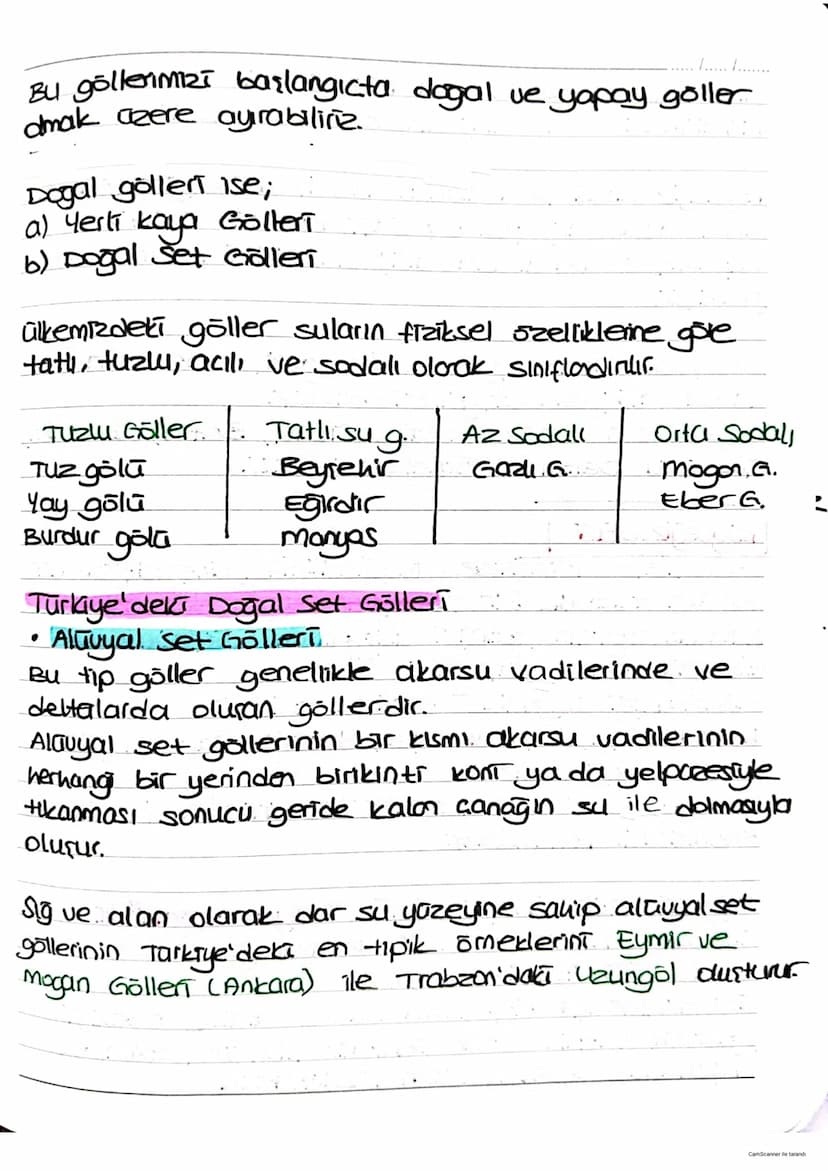 ..../..../....
Bu göllerimizi başlangıçta doğal ve yapay göller
olmak üzere ayırabiliriz.
Doğal gölleri ise;
a) Yerli kaya Gölleri
b) Doğal Set Gölleri
Ülkemizdeki göller suların fiziksel özelliklerine göre
tatlı, tuzlu, acılı ve sodalı olarak sınıflandırılır.
Tuzlu Göller Tatlı su g. Az Sodalı Orta Sodalı
Tuz gölü Beyşehir Gazlı G. Mogan G.
Yay gölü Eğirdir Eber G.
Burdur gölü Manyas
Türkiye'deki Doğal Set Gölleri
• Alüvyal Set Gölleri
Bu tip göller genellikle akarsu vadilerinde ve
deltalarda oluşan göllerdir.
Alüvyal set göllerinin bir kısmı akarsu vadilerinin
herhangi bir yerinden birikinti koni ya da yelpazesiyle
tıkanması sonucu geride kalan çanağın su ile dolmasıyla
oluşur.
Sığ ve alan olarak dar su yüzeyine sahip alüvyal set
göllerinin Türkiye'deki en tipik örneklerini Eymir ve
Mogan Gölleri (Ankara) ile Trabzon'daki Uzungöl oluşturur.
CamScanner ile tarandı